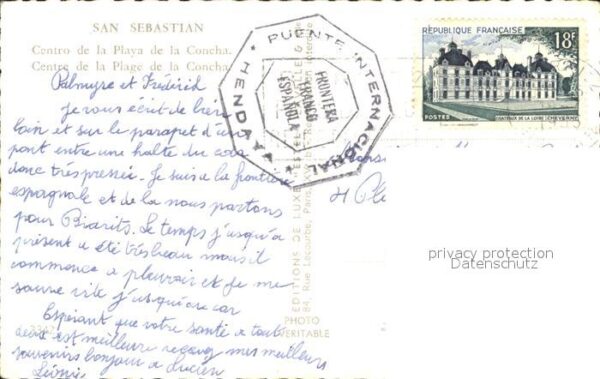 SAN SEBASTIAN
Centro de la Playa de la Concha.
Centre de la Plage de la Concha.
Palmyre et Frédérid
je vous écrit de bien
loin et sur le parapet d'un
pont entre une halte du car
donc très pressée. Je suis a la frontière
espagnole et de la nous partons
pour Biarits. Le temps jusqu'a
présent a été tres beau mais il
commence a pleuvoir et je me
sauve vite jusqu'au car
Espérant que votre santé a tout
deux est meilleure recevez mes meilleurs
souvenirs bonjour a Lucien
Léonie
3342
PUENTE INTERNACIONAL
HENDAYA
FRONTERA
FRANCO
ESPAÑOLA
EDITIONS DE LUXE
84, Rue Lecourbe, PARIS
PHOTO
VERITABLE
RÉPUBLIQUE FRANÇAISE
18F
POSTES
CHATEAUX DE LA LOIRE CHEVERNY
privacy protection
Datenschutz